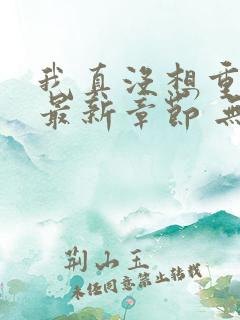 我真没想重
最新章节 无
荆山玉
未经同意禁止转载